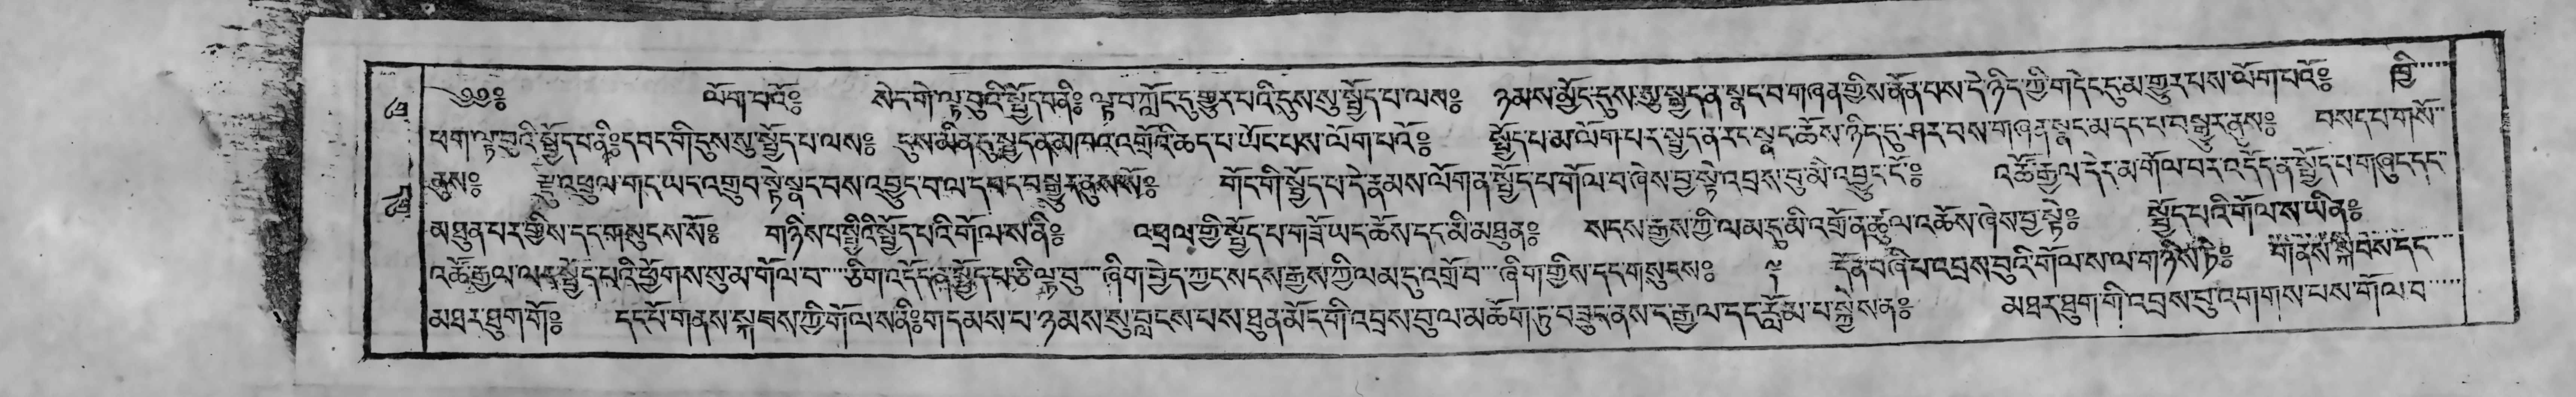 ༄༅༔ ལོག་པའོ༔ སེང་གེ་ལྟ་བུའི་སྤྱོད་པ་ནི༔ ལྟ་བ་ཀློང་དུ་གྱུར་པའི་དུས་སུ་སྤྱོད་པ་ལས༔ ཉམས་མྱོང་དུས་སུ་སྤྱད་ན་སྣང་བ་གཞན་གྱིས་ནོན་པས་དེ་ཉིད་ཀྱི་གདེང་དུ་མ་གྱུར་པས་ལོག་པའོ༔ ཁྱི
ཕག་ལྟ་བུའི་སྤྱོད་པ་ནི༔ དབང་གི་དུས་སུ་སྤྱོད་པ་ལས༔ དུས་མིན་དུ་སྤྱད་ན་མཁའ་འགྲོའི་ཆད་པ་ཡོང་པས་ལོག་པའོ༔ སྤྱོད་པ་མ་ལོག་པར་སྤྱད་ན་རང་སྣང་ཆོས་ཉིད་དུ་ཤར་བས་གཞན་སྣང་མ་དང་པ་བསྒྱུར་ནུས༔ བསད་པ་གསོ
ནུས༔ རྫུ་འཕྲུལ་གང་ཡང་འགྲུབ་སྟེ་སྣང་བས་འབྱུང་བ་ལ་དབང་བསྒྱུར་ནུས་སོ༔ གོང་གི་སྤྱོད་པ་དེ་རྣམས་ལོག་ན་སྤྱོད་པ་གོལ་བ་ཞེས་བྱ་སྟེ་འབྲས་བུ་མི་འབྱུང་ངོ༔ འཚོ་རྒྱལ་དེར་མ་གོལ་བར་འདོད་ན་སྤྱོད་པ་གཞུང་དང
མཐུན་པར་གྱིས་དང་གསུངས་སོ༔ གཉིས་པ་སྤྱིའི་སྤྱོད་པའི་གོལ་ས་ནི༔ འཕྲལ་གྱི་སྤྱོད་པ་གཟོ་ཡང་ཆོས་དང་མི་མཐུན༔ སངས་རྒྱས་ཀྱི་ལམ་དུ་མི་འགྲོ་ན་ཚུལ་འཆོས་ཞེས་བྱ་སྟེ༔ སྤྱོད་པའི་གོལ་ས་ཡིན༔
འཚོ་རྒྱལ་ལར་སྤྱོད་པའི་ཕྱོགས་སུ་མ་གོལ་བ་ཅིག་འདོད་ན་སྤྱོད་པ་ཅི་ལྟ་བུ་ཞིག་བྱེད་ཀྱང་སངས་རྒྱས་ཀྱི་ལམ་དུ་འགྲོ་བ་ཞིག་གྱིས་དང་གསུངས༔ དོན་བཞི་པ་འབྲས་བུའི་གོལ་ས་ལ་གཉིས་ཏེ༔ གནས་སྐབས་དང
མཐར་ཐུག་གོ༔ དང་པོ་གནས་སྐབས་ཀྱི་གོལ་ས་ནི༔ གདམས་པ་ཉམས་སུ་བླངས་པས་ཐུན་མོང་གི་འབྲས་བུ་ལ་མཆོག་ཏུ་བཟུང་ནས་ང་རྒྱལ་དང་རློམ་པ་སྐྱེས་ན༔ མཐར་ཐུག་གི་འབྲས་བུ་འགགས་པས་གོལ་བ